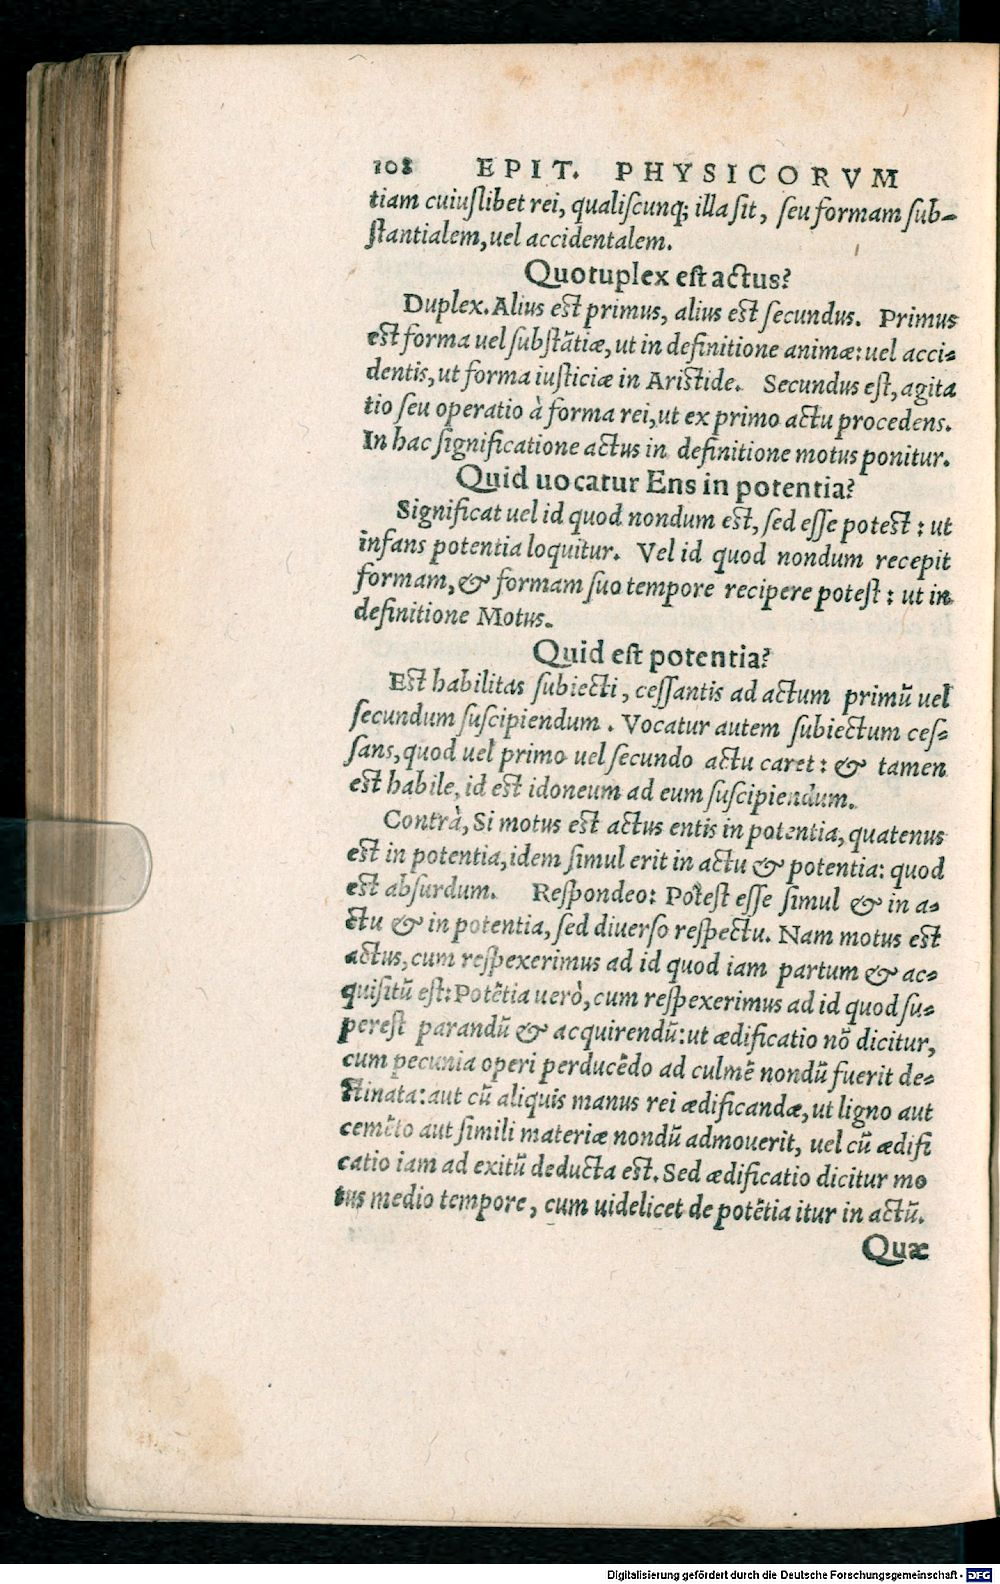 108 EPIT. PHYSICORVM
tiam cuiuſlibet rei, qualiſcunq; illa ſit, ſeu formam ſub-
ſtantialem, uel accidentalem.
Quotuplex eſt actus?
Duplex. Alius eſt primus, alius eſt ſecundus. Primus
eſt forma uel ſubſtãtiæ, ut in definitione animæ: uel acci-
dentis, ut forma iuſticiæ in Ariſtide. Secundus eſt, agita
tio ſeu operatio à forma rei, ut ex primo actu procedens.
In hac ſignificatione actus in definitione motus ponitur.
Quid uocatur Ens in potentia?
Significat uel id quod nondum eſt, ſed eſſe poteſt: ut
infans potentia loquitur. Vel id quod nondum recepit
formam, & formam ſuo tempore recipere poteſt: ut in
definitione Motus.
Quid eſt potentia?
Eſt habilitas ſubiecti, ceſſantis ad actum primũ uel
ſecundum ſuſcipiendum. Vocatur autem ſubiectum ceſ-
ſans, quod uel primo uel ſecundo actu caret: & tamen
eſt habile, id eſt idoneum ad eum ſuſcipiendum.
Contrà, Si motus eſt actus entis in potentia, quatenus
eſt in potentia, idem ſimul erit in actu & potentia: quod
eſt abſurdum. Reſpondeo: Poteſt eſſe ſimul & in a-
ctu & in potentia, ſed diuerſo reſpectu. Nam motus eſt
actus, cum reſpexerimus ad id quod iam partum & ac-
quiſitũ eſt: Potẽtia uerò, cum reſpexerimus ad id quod ſu-
pereſt parandũ & acquirendũ: ut ædificatio nõ dicitur,
cum pecunia operi perducẽdo ad culmẽ nondũ fuerit de-
ſtinata: aut cũ aliquis manus rei ædificandæ, ut ligno aut
cemẽto aut ſimili materiæ nondũ admouerit, uel cũ ædifi
catio iam ad exitũ deducta eſt. Sed ædificatio dicitur mo
tus medio tempore, cum uidelicet de potẽtia itur in actũ.
Quæ
Digitalisierung gefördert durch die Deutsche Forschungsgemeinschaft - DFG